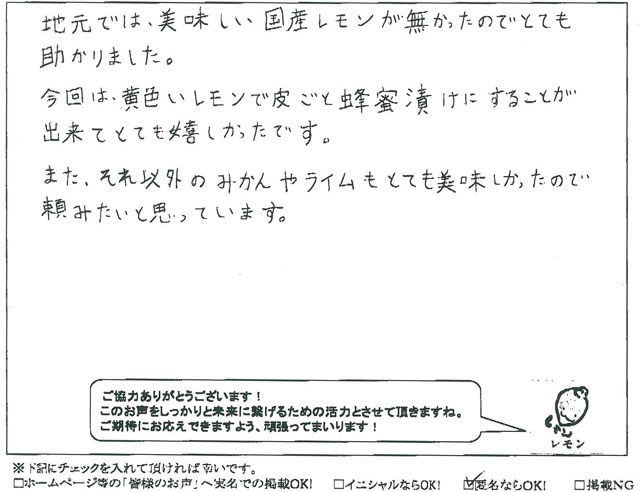 地元では、美味しい国産レモンが無かったのでとても
助かりました。
今回は、黄色いレモンで皮ごと蜂蜜漬けにすることが
出来てとても嬉しかったです。
また、それ以外のみかんやライムもとても美味しかったので
頼みたいと思っています。
ご協力ありがとうございます!
このお声をしっかりと未来に繋げるための活力とさせて頂きますね。
ご期待にお応えできますよう、頑張ってまいります!
レモン
※下記にチェックを入れて頂ければ幸いです。
□ホームページ等の「皆様のお声」へ実名での掲載OK! □イニシャルならOK! ☑匿名ならOK! □掲載NG